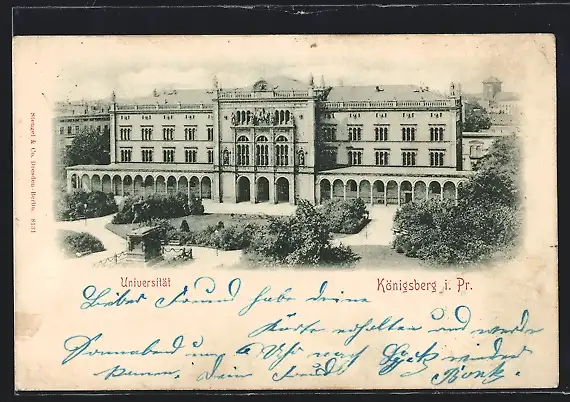 Stengel & Co. Dresden-Berlin. 8131
Universität
Königsberg i. Pr.
Lieber Freund habe deine
Karte erhalten und werde
Sonnabend um 6 Uhr nach
kommen. Dein Freund